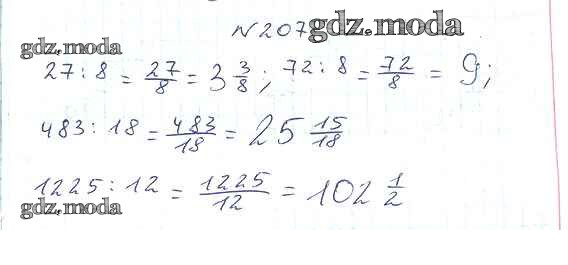 N 207 gdz.moda
gdz.moda
27 : 8 = 27/8 = 3 3/8 ; 72 : 8 = 72/8 = 9;
483 : 18 = 483/18 = 25 15/18
1225 : 12 = 1225/12 = 102 1/2
gdz.moda